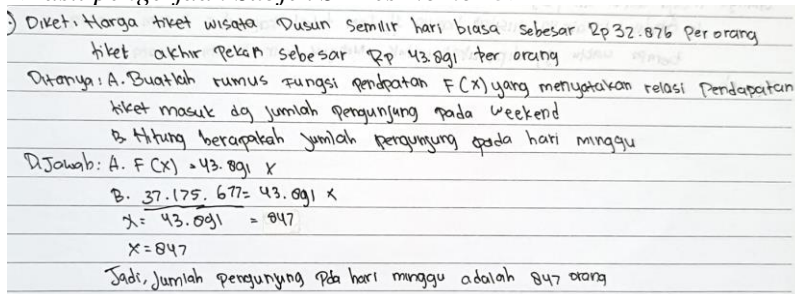 Diket, Harga tiket wisata Dusun Semilir hari biasa sebesar Rp 32.876 Per orang
tiket akhir pekan sebesar Rp 43.891 ter orang
Ditanya : A. Buatlah rumus Fungsi pendpatan F(x) yang menyatakan relasi Pendapatan
tiket masuk dg jumlah pengunjung pada weekend
B Hitung berapakah jumlah pengunjung pada hari minggu
D.Jawab : A. F (x) = 43.891 x
B. 37.175.677 = 43.891 x
x = 43.891 = 847
x = 847
Jadi, Jumlah pengunjung Pda hari minggu adalah 847 orang